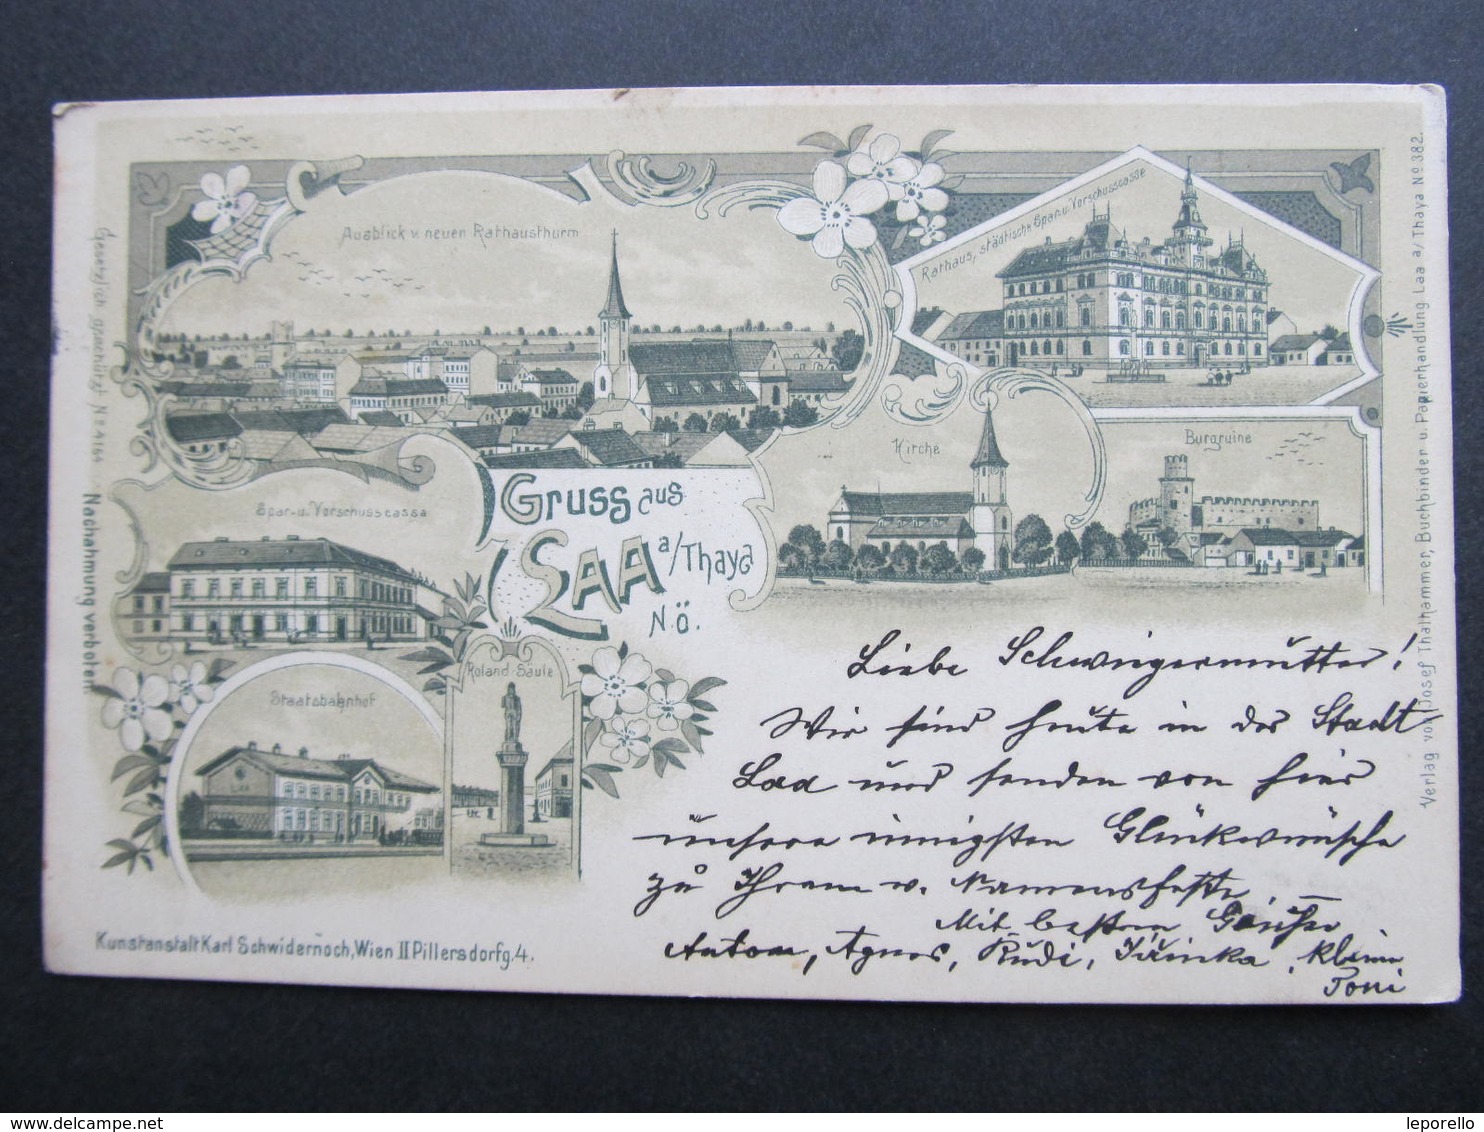 Ausblick v. neuen Rathausthurm
Rathaus, städtische Spar- u. Vorschusscasse
Kirche
Burgruine
Spar- u. Vorschusscassa
Gruss aus
LAA a/Thaya
N.Ö.
Staatsbahnhof
LAA
Roland-Säule
Gesetzlich geschützt No 4164
Nachahmung verboten.
Verlag von Josef Thalhammer, Buchbinder u. Papierhandlung Laa a/Thaya No 382.
Kunstanstalt Karl Schwidernoch, Wien II Pillersdorfg. 4.
Liebe Schwiegermutter!
Wir sind heute in der Stadt
Laa und senden von hier
unsere innigsten Glückwünsche
zu Ihrem w. Namensfeste
Mit besten Grüßen
Anton, Agnes, Rudi, kleine
Toni
leporello